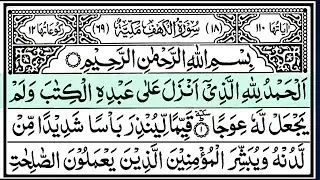 اٰیَاتُهَا ١١٠ (١٨) سُوْرَةُ الْكَهْفِ مَكِّيَّةٌ (٦٩) رُكُوْعَاتُهَا ١٢
بِسْمِ اللّٰهِ الرَّحْمٰنِ الرَّحِيْمِ
اَلْحَمْدُ لِلّٰهِ الَّذِیْۤ اَنْزَلَ عَلٰى عَبْدِهِ الْكِتٰبَ وَلَمْ
يَجْعَلْ لَّهٗ عِوَجًا ١ قَيِّمًا لِّيُنْذِرَ بَاْسًا شَدِيْدًا مِّنْ
لَّدُنْهُ وَيُبَشِّرَ الْمُؤْمِنِيْنَ الَّذِيْنَ يَعْمَلُوْنَ الصّٰلِحٰتِ